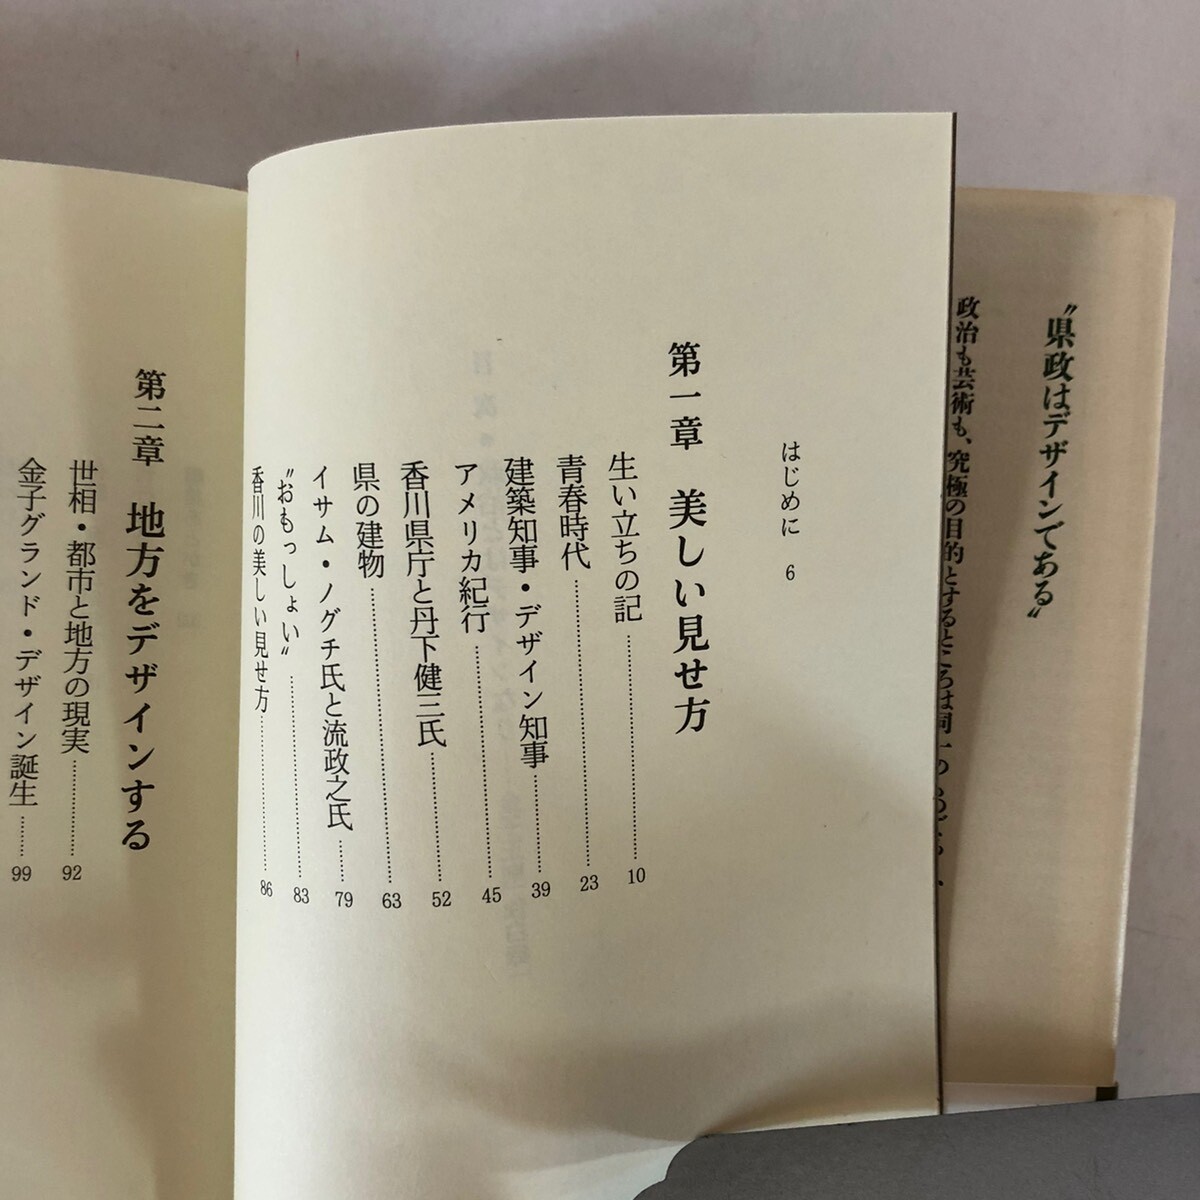 “県政はデザインである”
政治も芸術も、究極の目的とするところは同一の
はじめに 6
第一章 美しい見せ方
生い立ちの記 10
青春時代 23
建築知事・デザイン知事 39
アメリカ紀行 45
香川県庁と丹下健三氏 52
県の建物 63
イサム・ノグチ氏と流政之氏 79
“おもっしょい” 83
香川の美しい見せ方 86
第二章 地方をデザインする
世相・都市と地方の現実 92
金子グランド・デザイン誕生 99